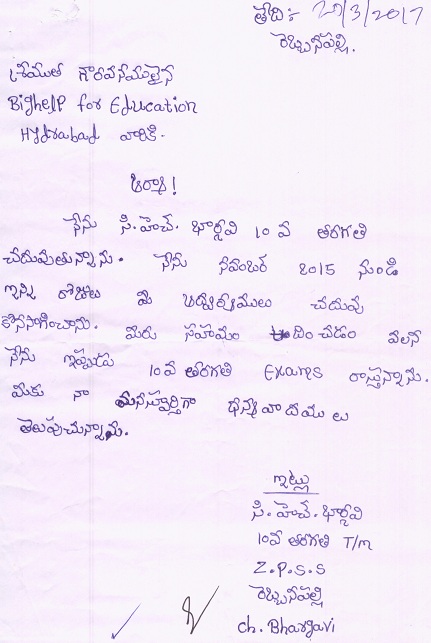 తేది:- 20/3/2017
రెబ్బనపల్లి.
శ్రీయుత గౌరవనీయులైన
BigHelP for Education
Hyderabad వారికి.
ఆర్యా!
నేను సి.హెచ్. భార్గవి 10 వ తరగతి
చదువుతున్నాను. నేను నవంబర్ 2015 నుండి
ఇన్ని రోజులు మీ చదువు
కొనసాగించాను. మీరు సహాయం చడం వలన
నేను ఇప్పుడు 10వ తరగతి Exams రాస్తున్నాను.
మీకు నా మనస్పూర్తిగా ధన్యవాదములు
తెలుపుచున్నాను.
ఇట్లు
సి. హెచ్. భార్గవి
10వ తరగతి T/m
Z.P.S.S
రెబ్బనపల్లి
ch. Bhargavi